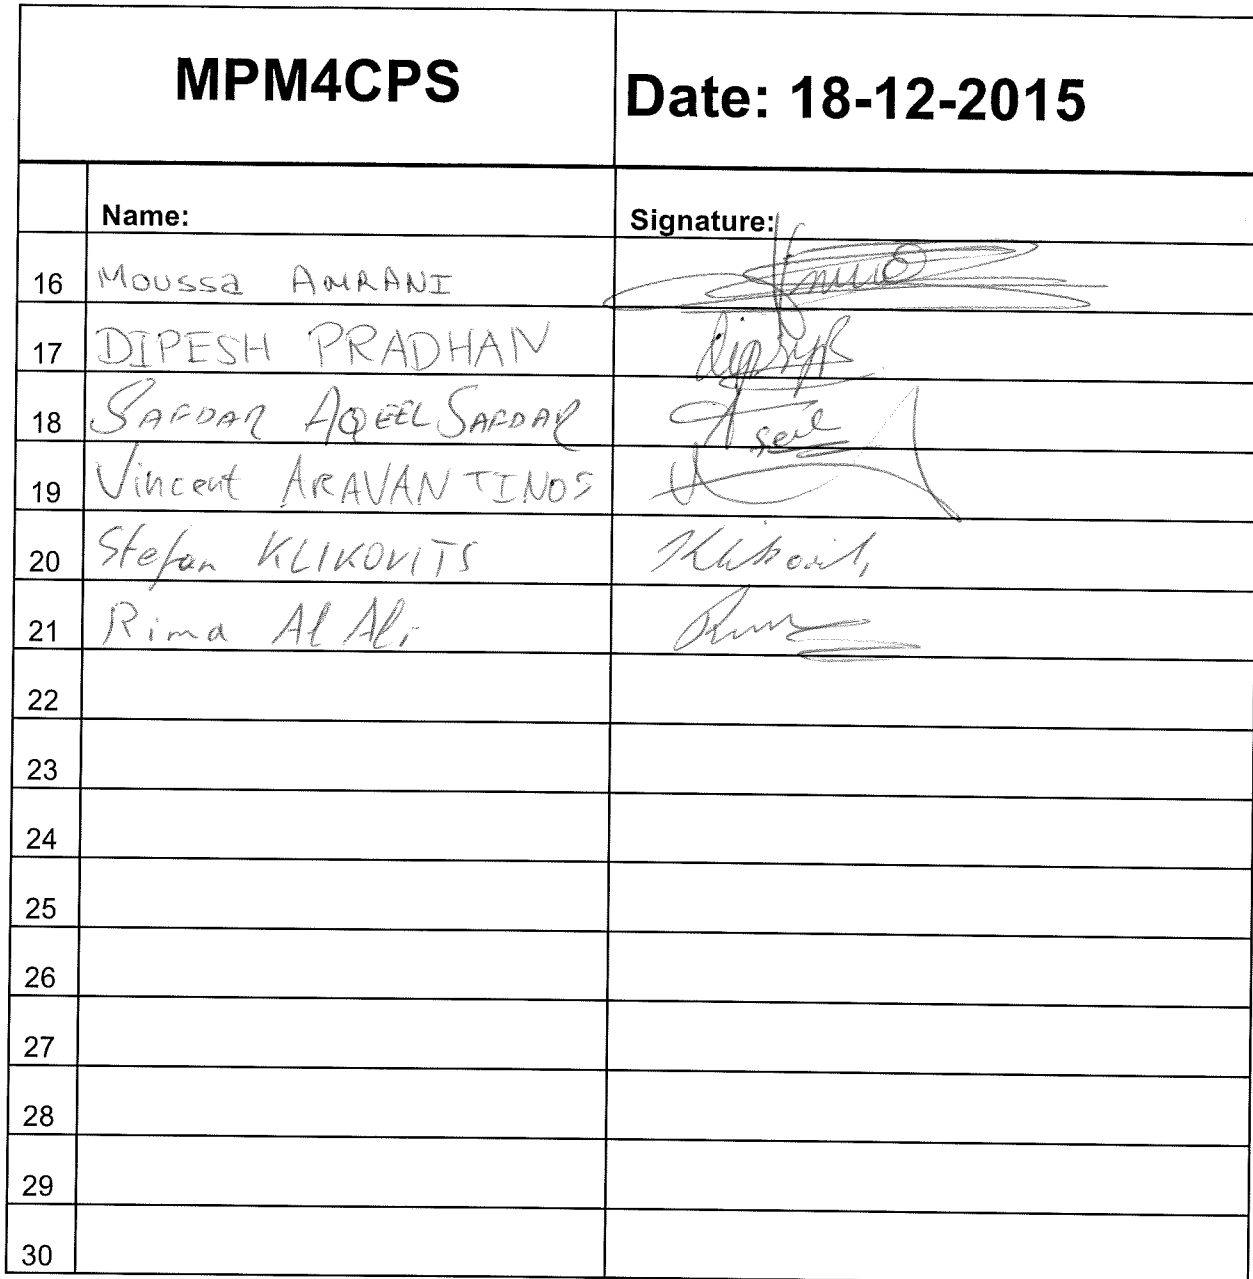 MPM4CPS Date: 18-12-2015
Name: Signature:
16 Moussa AMRANI
17 DIPESH PRADHAN
18 SAFDAR AQEEL SAFDAR
19 Vincent ARAVANTINOS
20 Stefan KLIKOVITS
21 Rima Al Ali
22
23
24
25
26
27
28
29
30